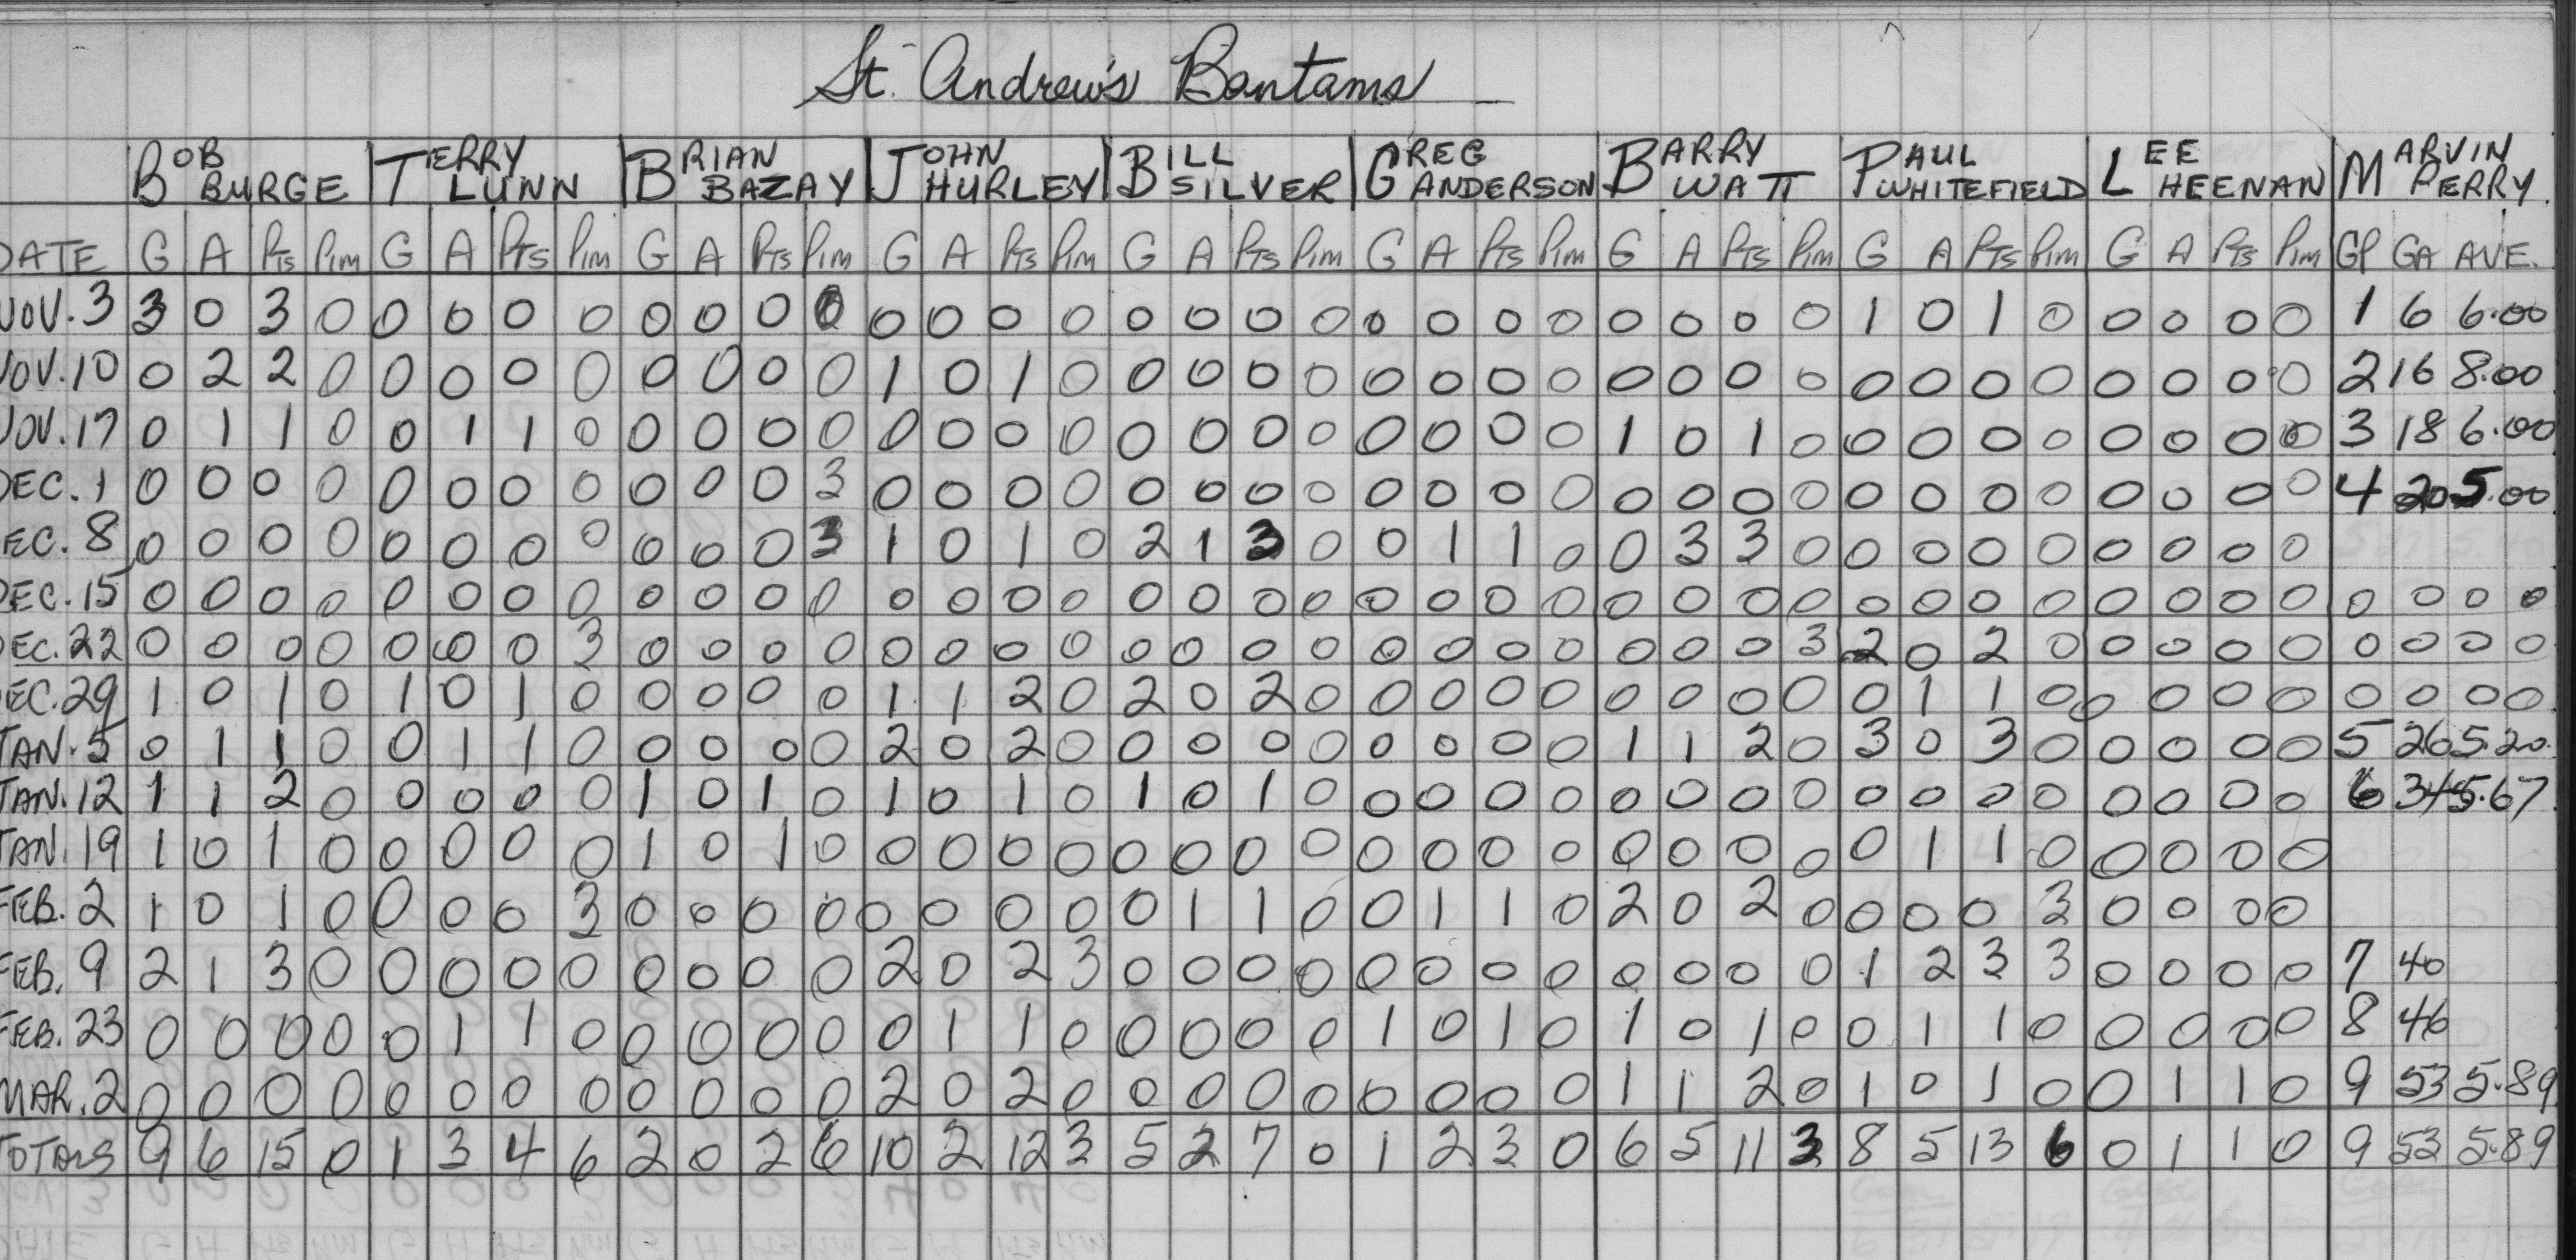 St. Andrew's Bantams
BOB BURGE TERRY LUNN BRIAN BAZAY JOHN HURLEY BILL SILVER GREG ANDERSON BARRY WATT PAUL WHITEFIELD LEE HEENAN MARVIN PERRY
DATE G A Pts Pim G A Pts Pim G A Pts Pim G A Pts Pim G A Pts Pim G A Pts Pim G A Pts Pim G A Pts Pim G A Pts Pim GP GA AVE.
NOV. 3 3 0 3 0 0 0 0 0 0 0 0 0 0 0 0 0 0 0 0 0 0 0 0 0 0 0 0 0 1 0 1 0 0 0 0 0 1 6 6.00
NOV. 10 0 2 2 0 0 0 0 0 0 0 0 0 1 0 1 0 0 0 0 0 0 0 0 0 0 0 0 0 0 0 0 0 0 0 0 0 2 16 8.00
NOV. 17 0 1 1 0 0 1 1 0 0 0 0 0 0 0 0 0 0 0 0 0 0 0 0 0 1 0 1 0 0 0 0 0 0 0 0 0 3 18 6.00
DEC. 1 0 0 0 0 0 0 0 0 0 0 0 3 0 0 0 0 0 0 0 0 0 0 0 0 0 0 0 0 0 0 0 0 0 0 0 0 4 20 5.00
DEC. 8 0 0 0 0 0 0 0 0 0 0 0 3 1 0 1 0 2 1 3 0 0 1 1 0 0 3 3 0 0 0 0 0 0 0 0 0
DEC. 15 0 0 0 0 0 0 0 0 0 0 0 0 0 0 0 0 0 0 0 0 0 0 0 0 0 0 0 0 0 0 0 0 0 0 0 0 0 0 0 0
DEC. 22 0 0 0 0 0 0 0 3 0 0 0 0 0 0 0 0 0 0 0 0 0 0 0 0 0 0 0 3 2 0 2 0 0 0 0 0 0 0 0 0
DEC. 29 1 0 1 0 1 0 1 0 0 0 0 0 1 1 2 0 2 0 2 0 0 0 0 0 0 0 0 0 0 1 1 0 0 0 0 0 0 0 0 0
JAN. 5 0 1 1 0 0 1 1 0 0 0 0 0 2 0 2 0 0 0 0 0 0 0 0 0 1 1 2 0 3 0 3 0 0 0 0 0 5 26 5.20
JAN. 12 1 1 2 0 0 0 0 0 1 0 1 0 1 0 1 0 1 0 1 0 0 0 0 0 0 0 0 0 0 0 0 0 0 0 0 0 6 34 5.67
JAN. 19 1 0 1 0 0 0 0 0 1 0 1 0 0 0 0 0 0 0 0 0 0 0 0 0 0 0 0 0 0 1 1 0 0 0 0 0
FEB. 2 1 0 1 0 0 0 0 3 0 0 0 0 0 0 0 0 0 1 1 0 0 1 1 0 2 0 2 0 0 0 0 3 0 0 0 0
FEB. 9 2 1 3 0 0 0 0 0 0 0 0 0 2 0 2 3 0 0 0 0 0 0 0 0 0 0 0 0 1 2 3 3 0 0 0 0 7 40
FEB. 23 0 0 0 0 0 1 1 0 0 0 0 0 0 1 1 0 0 0 0 0 1 0 1 0 1 0 1 0 0 1 1 0 0 0 0 0 8 46
MAR. 2 0 0 0 0 0 0 0 0 0 0 0 0 2 0 2 0 0 0 0 0 0 0 0 0 1 1 2 0 1 0 1 0 0 1 1 0 9 53 5.89
TOTALS 9 6 15 0 1 3 4 6 2 0 2 6 10 2 12 3 5 2 7 0 1 2 3 0 6 5 11 3 8 5 13 6 0 1 1 0 9 53 5.89